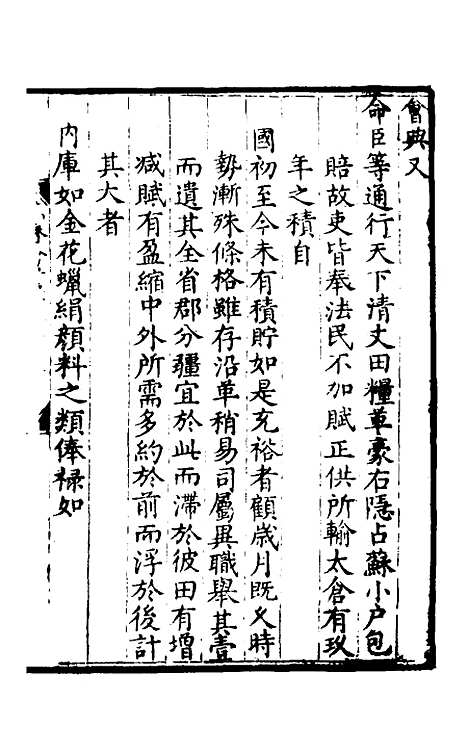 會典又
命臣等通行天下清丈田糧革豪右隱占蘇小户包
賠故吏皆奉法民不加賦正供所輸太倉有玖
年之積自
國初至今未有積貯如是充裕者顧歲月既久時
勢漸殊條格雖存沿革稍易司屬異職舉其壹
而遺其全省郡分疆宜於此而滯於彼田有增
减賦有盈縮中外所需多約於前而浮於後計
其大者
内庫如金花蠟絹顔料之類俸祿如